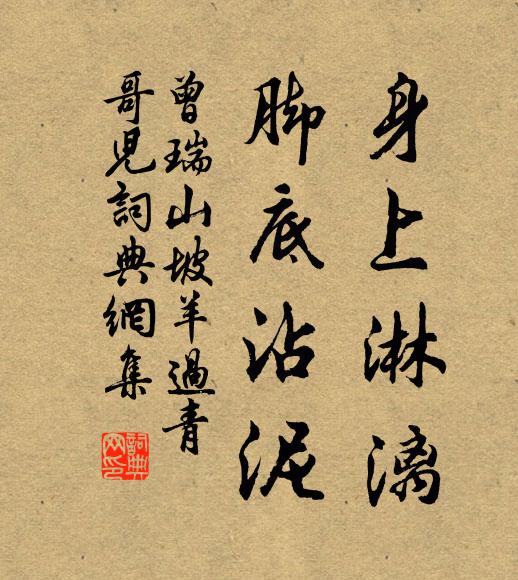 身上淋漓
脚底沾泥
曾瑞山坡羊過青
哥児詞典網集
詞典
网印